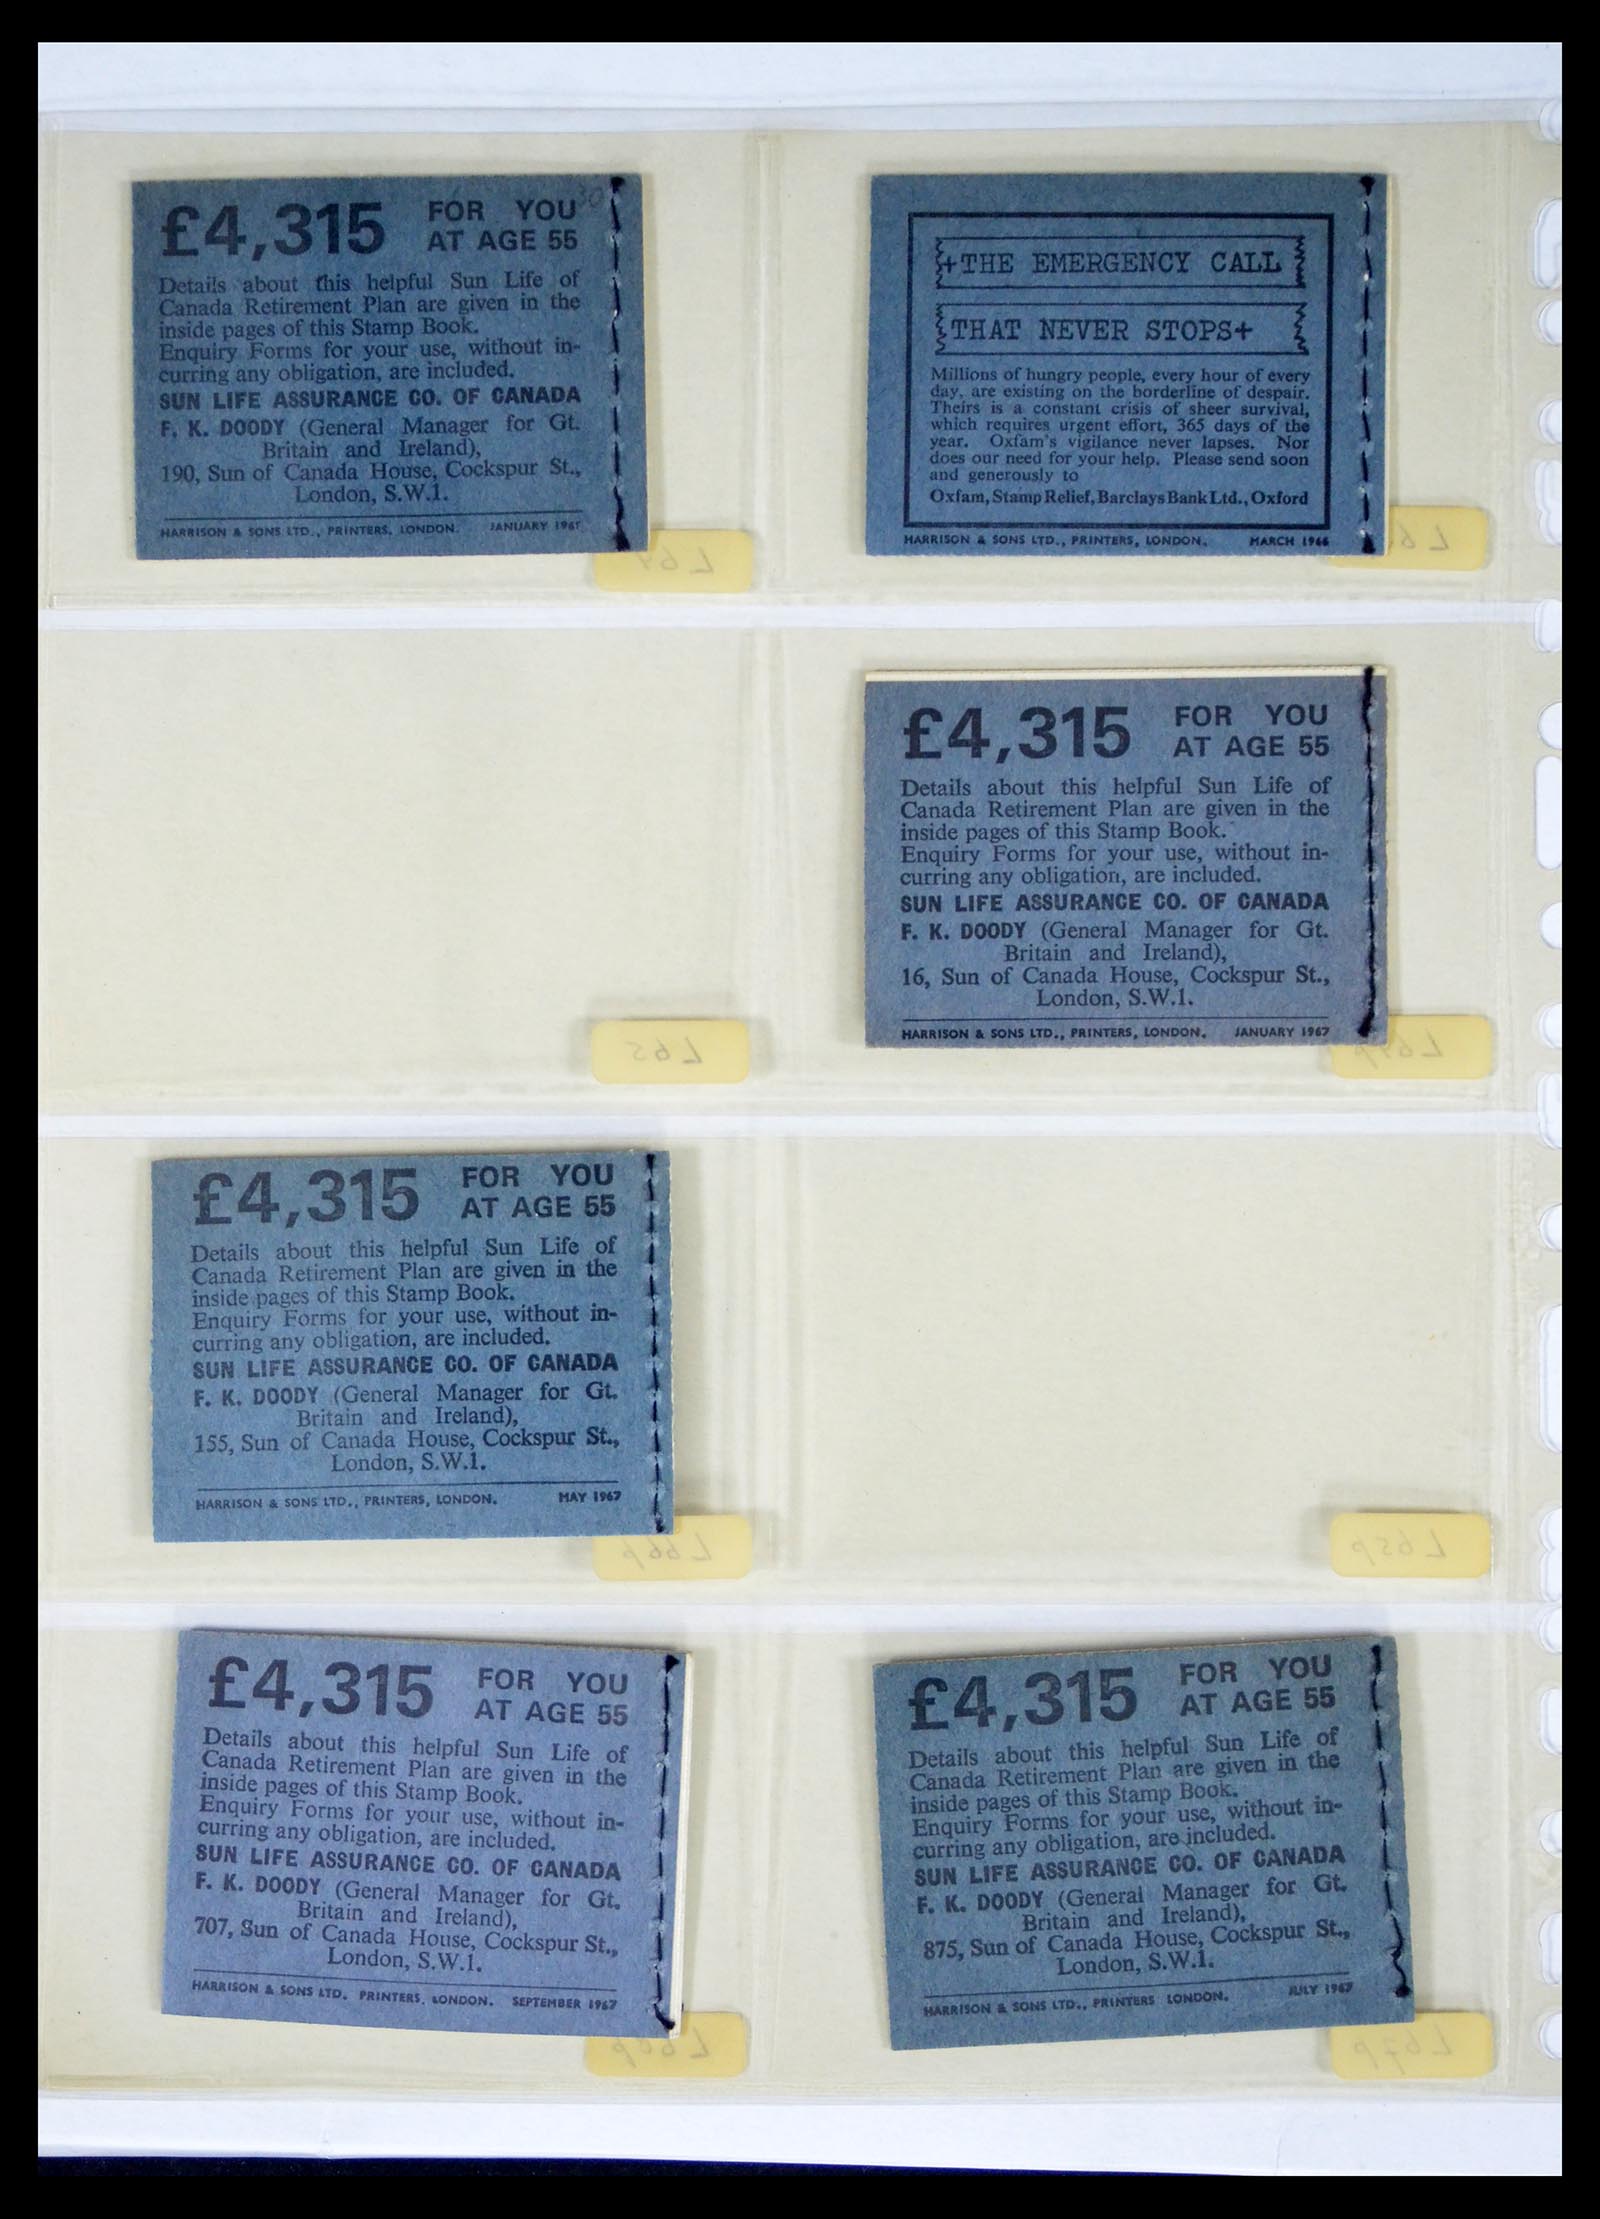 £4,315 FOR YOU
AT AGE 55
Details about this helpful Sun Life of
Canada Retirement Plan are given in the
inside pages of this Stamp Book.
Enquiry Forms for your use, without in-
curring any obligation, are included.
SUN LIFE ASSURANCE CO. OF CANADA
F. K. DOODY (General Manager for Gt.
Britain and Ireland),
190, Sun of Canada House, Cockspur St.,
London, S.W.1.
HARRISON & SONS LTD., PRINTERS, LONDON. JANUARY
+THE EMERGENCY CALL
THAT NEVER STOPS+
Millions of hungry people, every hour of every
day, are existing on the borderline of despair.
Theirs is a constant crisis of sheer survival,
which requires urgent effort, 365 days of the
year. Oxfam's vigilance never lapses. Nor
does our need for your help. Please send soon
and generously to
Oxfam, Stamp Relief, Barclays Bank Ltd., Oxford
HARRISON & SONS LTD., PRINTERS, LONDON. MARCH 1966
£4,315 FOR YOU
AT AGE 55
Details about this helpful Sun Life of
Canada Retirement Plan are given in the
inside pages of this Stamp Book.
Enquiry Forms for your use, without in-
curring any obligation, are included.
SUN LIFE ASSURANCE CO. OF CANADA
F. K. DOODY (General Manager for Gt.
Britain and Ireland),
16, Sun of Canada House, Cockspur St.,
London, S.W.1.
HARRISON & SONS LTD., PRINTERS, LONDON. JANUARY 1967
L65
£4,315 FOR YOU
AT AGE 55
Details about this helpful Sun Life of
Canada Retirement Plan are given in the
inside pages of this Stamp Book.
Enquiry Forms for your use, without in-
curring any obligation, are included.
SUN LIFE ASSURANCE CO. OF CANADA
F. K. DOODY (General Manager for Gt.
Britain and Ireland),
155, Sun of Canada House, Cockspur St.,
London, S.W.1.
HARRISON & SONS LTD., PRINTERS, LONDON. MAY 1967
L66p
L65p
£4,315 FOR YOU
AT AGE 55
Details about this helpful Sun Life of
Canada Retirement Plan are given in the
inside pages of this Stamp Book.
Enquiry Forms for your use, without in-
curring any obligation, are included.
SUN LIFE ASSURANCE CO. OF CANADA
F. K. DOODY (General Manager for Gt.
Britain and Ireland),
707, Sun of Canada House, Cockspur St.,
London, S.W.1.
HARRISON & SONS LTD. PRINTERS, LONDON. SEPTEMBER 1967
£4,315 FOR YOU
AT AGE 55
Details about this helpful Sun Life of
Canada Retirement Plan are given in the
inside pages of this Stamp Book.
Enquiry Forms for your use, without in-
curring any obligation, are included.
SUN LIFE ASSURANCE CO. OF CANADA
F. K. DOODY (General Manager for Gt.
Britain and Ireland),
875, Sun of Canada House, Cockspur St.,
London, S.W.1.
HARRISON & SONS LTD., PRINTERS LONDON. JULY 1967
L67p